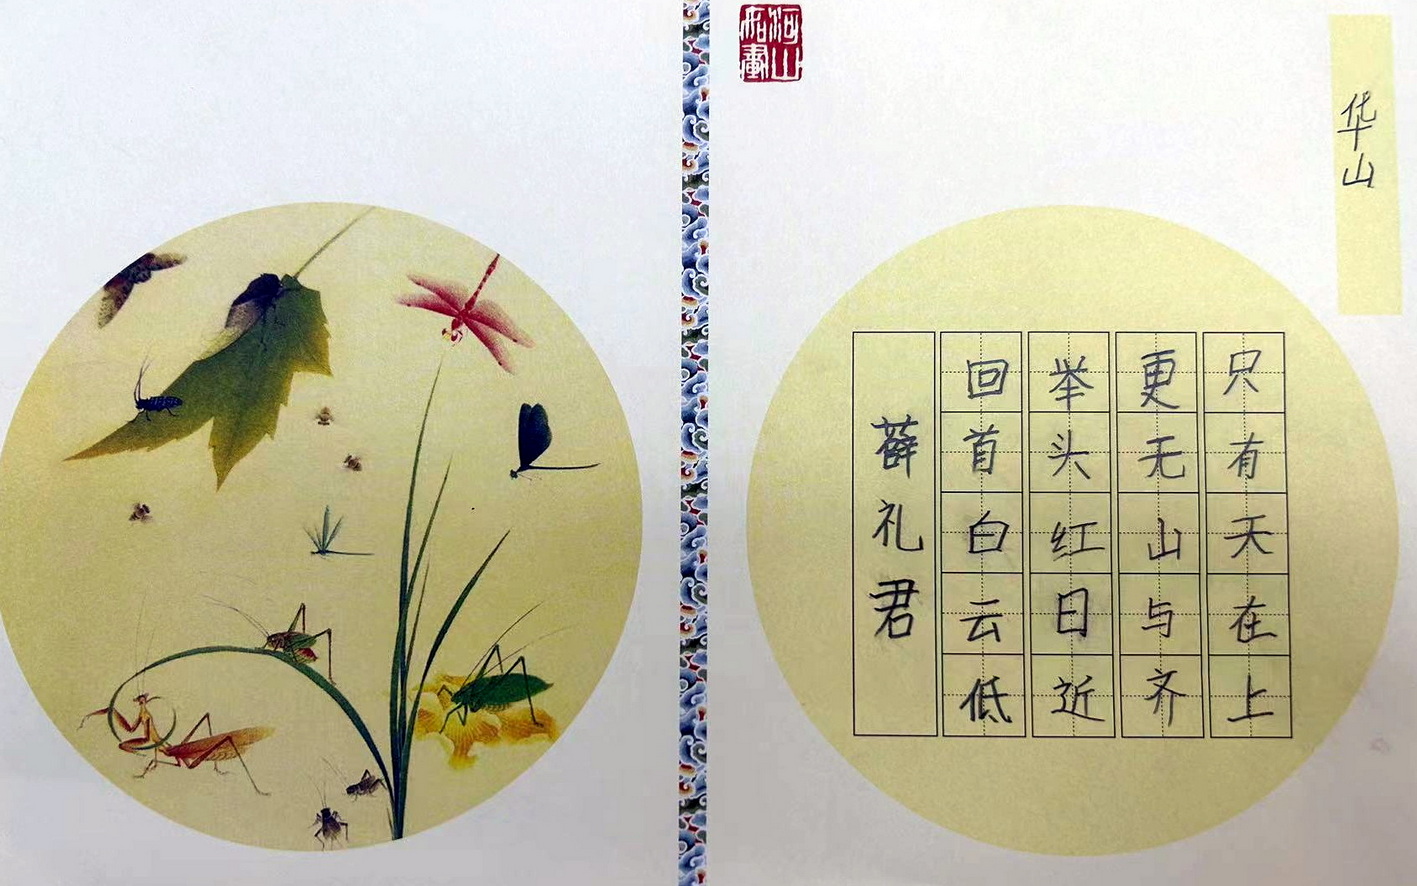 华山
只有天在上
更无山与齐
举头红日近
回首白云低
薛礼君
河山如畫